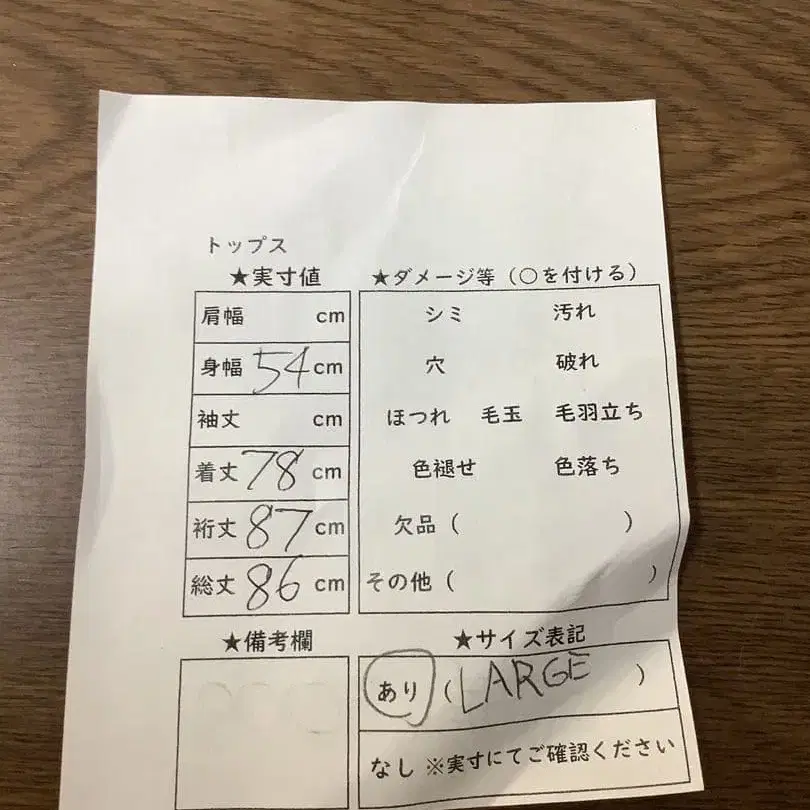 トップス
★実寸値
肩幅 cm
身幅 54 cm
袖丈 cm
着丈 78 cm
裄丈 87 cm
総丈 86 cm
★ダメージ等（○を付ける）
シミ 汚れ
穴 破れ
ほつれ 毛玉 毛羽立ち
色褪せ 色落ち
欠品（ ）
その他（ ）
★備考欄
★サイズ表記
あり（LARGE ）
なし ※実寸にてご確認ください